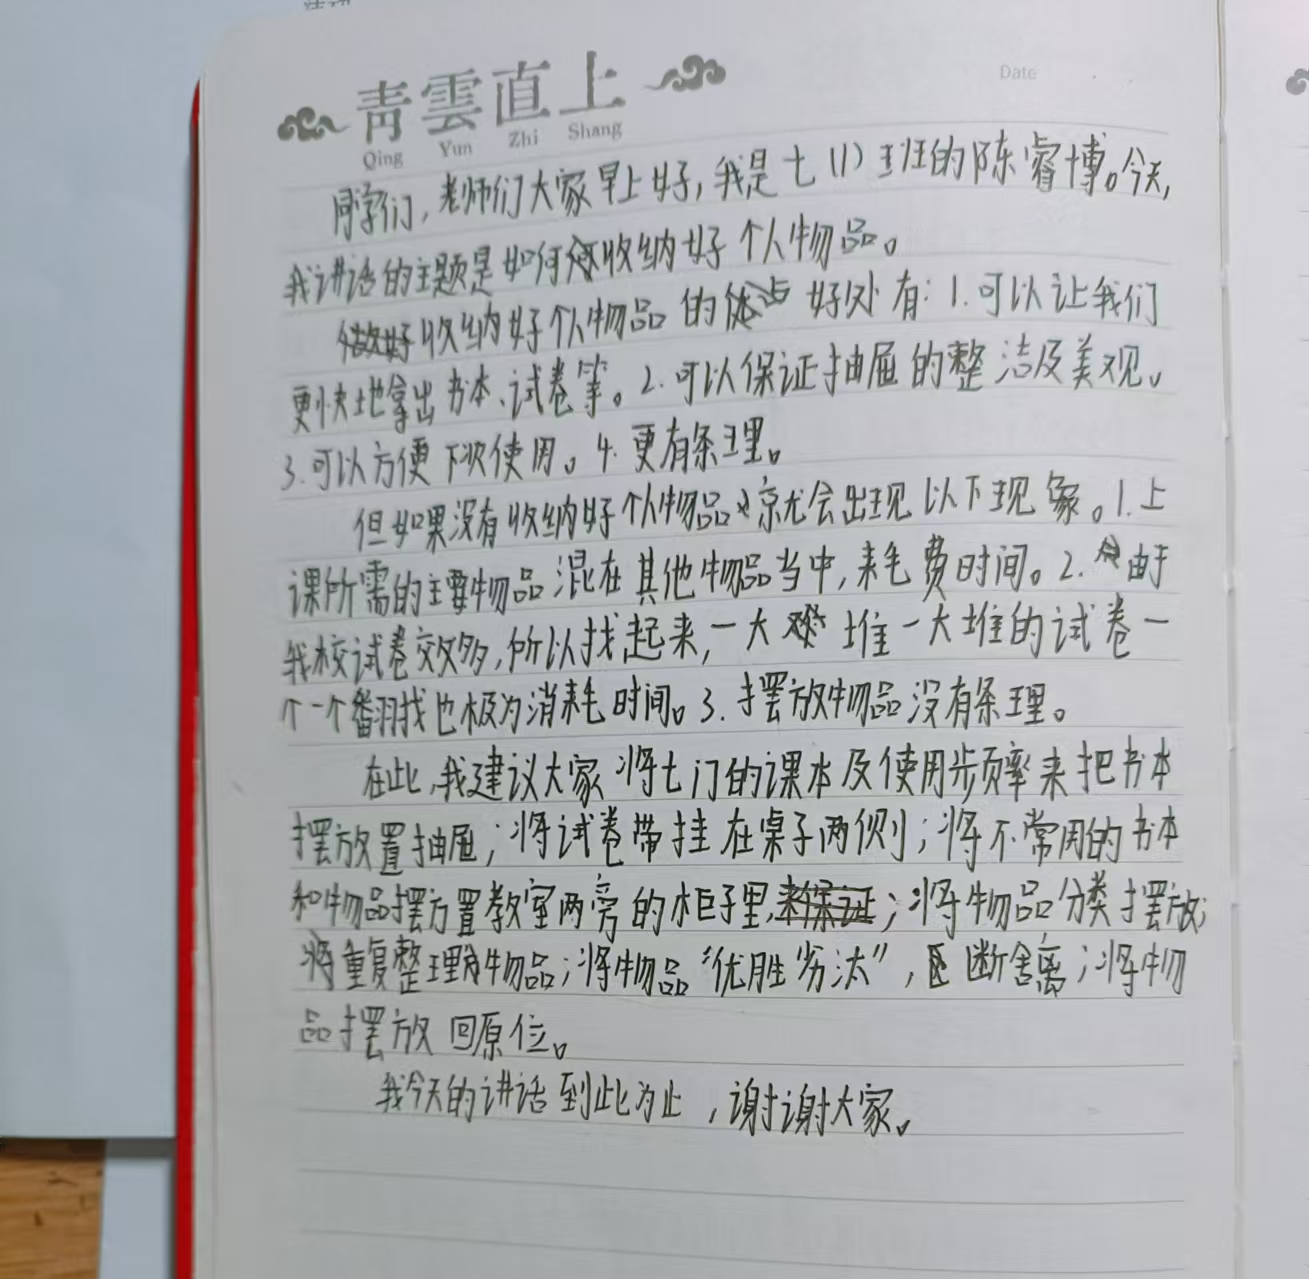 青雲直上
Qing Yun Zhi Shang
Date
同学们，老师们大家早上好，我是七（1）班的陈睿博。今天，
我讲话的主题是如何收纳好个人物品。
收纳好个人物品的好处有：1.可以让我们
更快地拿出书本、试卷等。2.可以保证抽屉的整洁及美观。
3.可以方便下次使用。4.更有条理。
但如果没有收纳好个人物品，就会出现以下现象。1.上
课所需的主要物品混在其他物品当中，耗费时间。2.由于
我校试卷较多，所以找起来，一大堆一大堆的试卷一
个一个翻找也极为消耗时间。3.摆放物品没有条理。
在此，我建议大家将七门的课本及使用频率来把书本
摆放置抽屉；将试卷带挂在桌子两侧；将不常用的书本
和物品摆放置教室两旁的柜子里；将物品分类摆放；
将重复整理物品；将物品“优胜劣汰”，断舍离；将物
品摆放回原位。
我今天的讲话到此为止，谢谢大家。